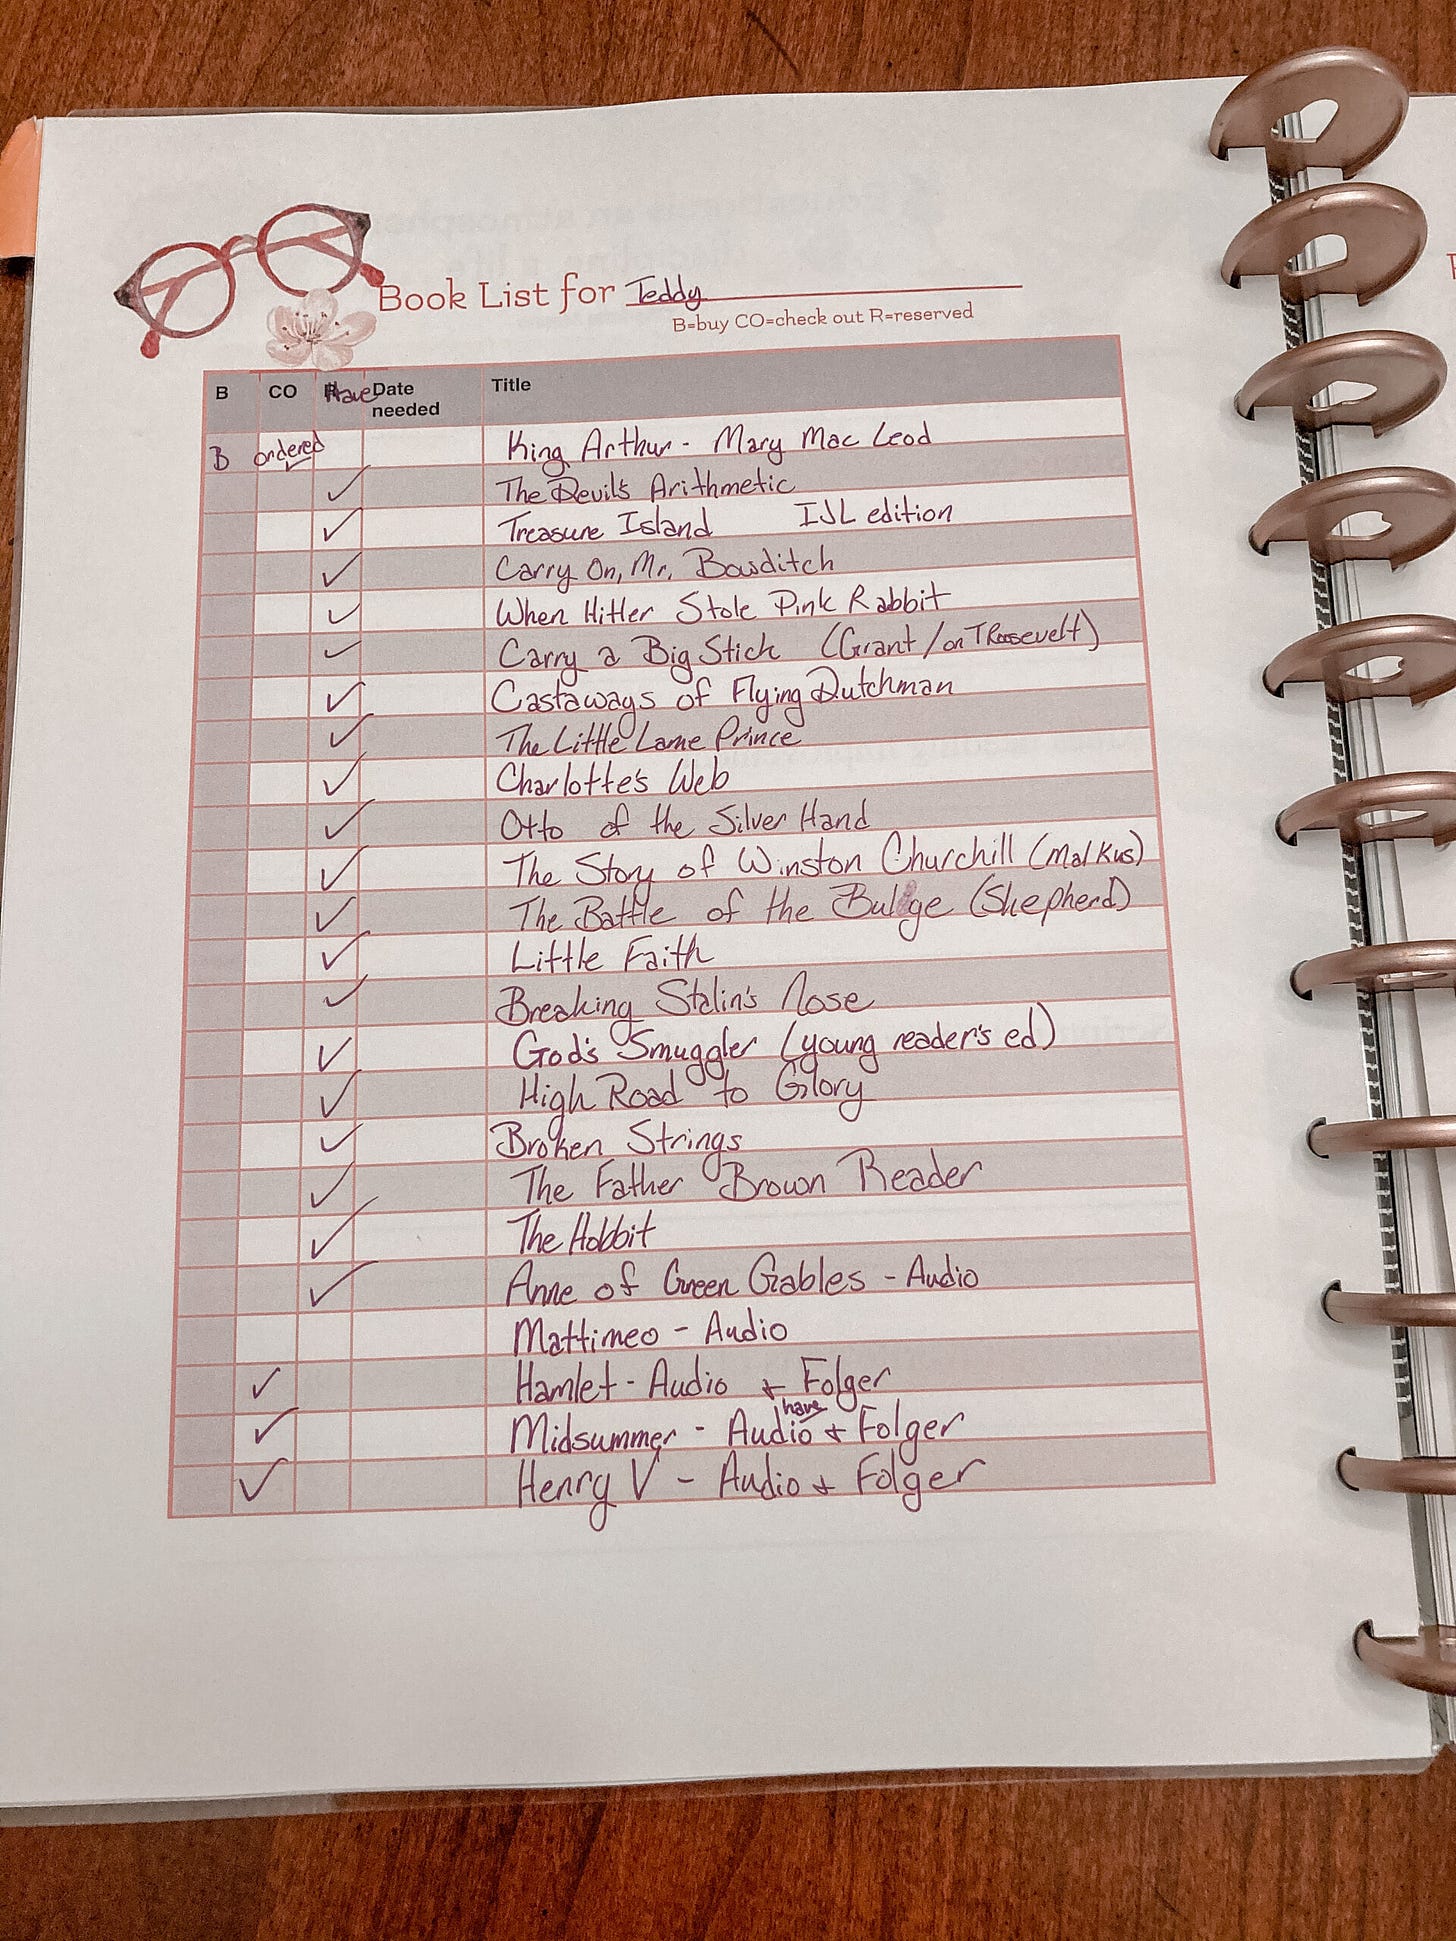 Book List for Teddy
B=buy CO=check out R=reserved
B CO Have Date needed Title
B ordered King Arthur - Mary Mac Leod
✓ The Devil's Arithmetic
✓ Treasure Island IJL edition
✓ Carry On, Mr. Bowditch
✓ When Hitler Stole Pink Rabbit
✓ Carry a Big Stick (Grant/on TRoosevelt)
✓ Castaways of Flying Dutchman
✓ The Little Lame Prince
✓ Charlotte's Web
✓ Otto of the Silver Hand
✓ The Story of Winston Churchill (Malkus)
✓ The Battle of the Bulge (Shepherd)
✓ Little Faith
✓ Breaking Stalin's Nose
✓ God's Smuggler (young reader's ed)
✓ High Road to Glory
✓ Broken Strings
✓ The Father Brown Reader
✓ The Hobbit
✓ Anne of Green Gables - Audio
Mattimeo - Audio
✓ Hamlet - Audio + Folger
✓ Midsummer - Audio + have Folger
✓ Henry V - Audio + Folger